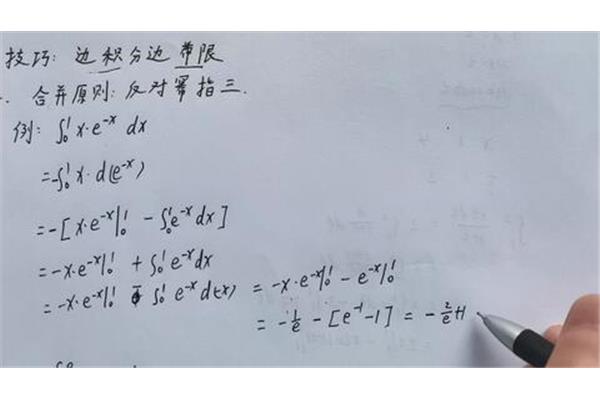 技巧: 边积分边带限
合并原则: 反对幂指三.
例: ∫₀¹ x·e⁻ˣ dx
=-∫₀¹ x·d(e⁻ˣ)
=-[x·e⁻ˣ|₀¹ - ∫₀¹e⁻ˣdx]
=-x·e⁻ˣ|₀¹ + ∫₀¹e⁻ˣdx
=-x·e⁻ˣ|₀¹ - ∫₀¹ e⁻ˣd(-x) = -x·e⁻ˣ|₀¹ - e⁻ˣ|₀¹
= -1/e - [e⁻¹-1] = -2/e+1